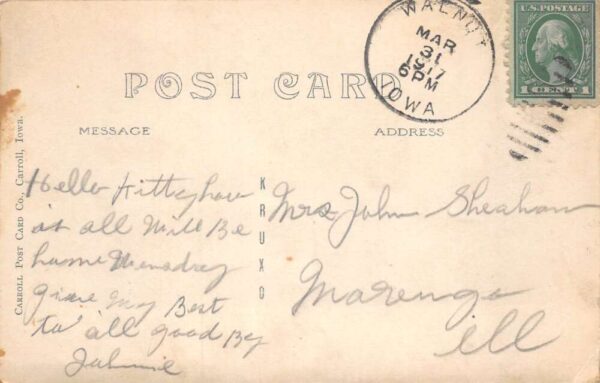 WALNUT
MAR
31
1917
6 PM
IOWA
U.S. POSTAGE
1 CENT 1
POST CARD
MESSAGE
ADDRESS
CARROLL POST CARD CO., Carroll, Iowa.
KRUXO
Hello Kitty how
is all Will Be
home
give my Best
to all good By
Johnie
Mrs John Sheahan
Marengo
Ill